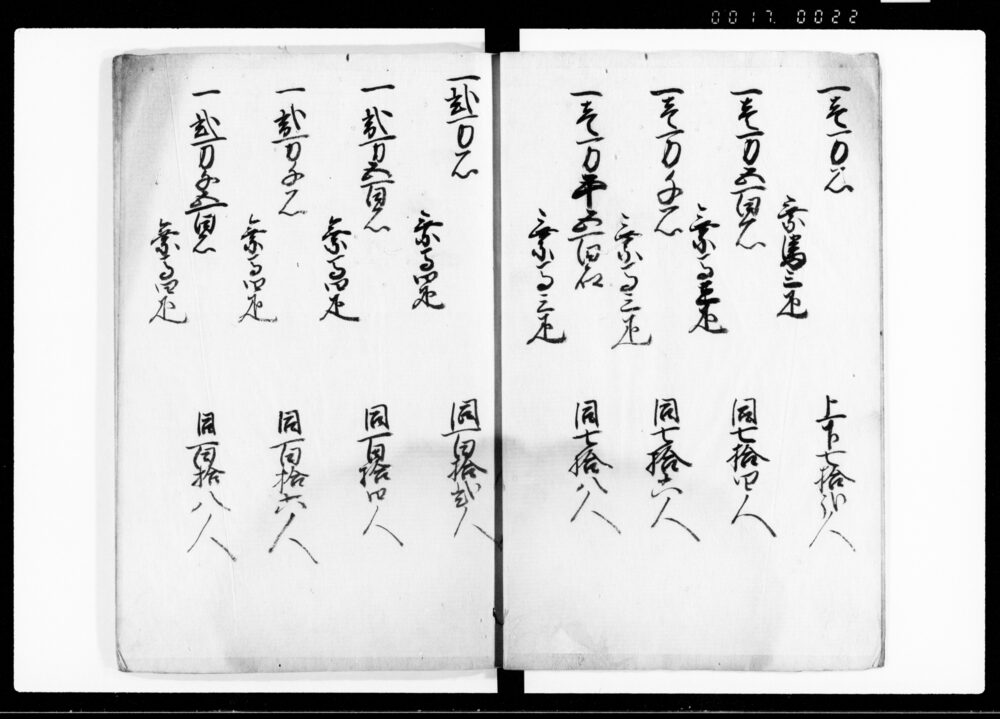 0017 0022
一壱万石
乗馬三疋
上下七拾弐人
一壱万五百石
乗馬三疋
同七拾四人
一壱万千石
乗馬三疋
同七拾六人
一壱万千五百石
乗馬三疋
同七拾八人
一弐万石
乗馬四疋
同百拾弐人
一弐万五百石
乗馬四疋
同百拾四人
一弐万千石
乗馬四疋
同百拾六人
一弐万千五百石
乗馬四疋
同百拾八人